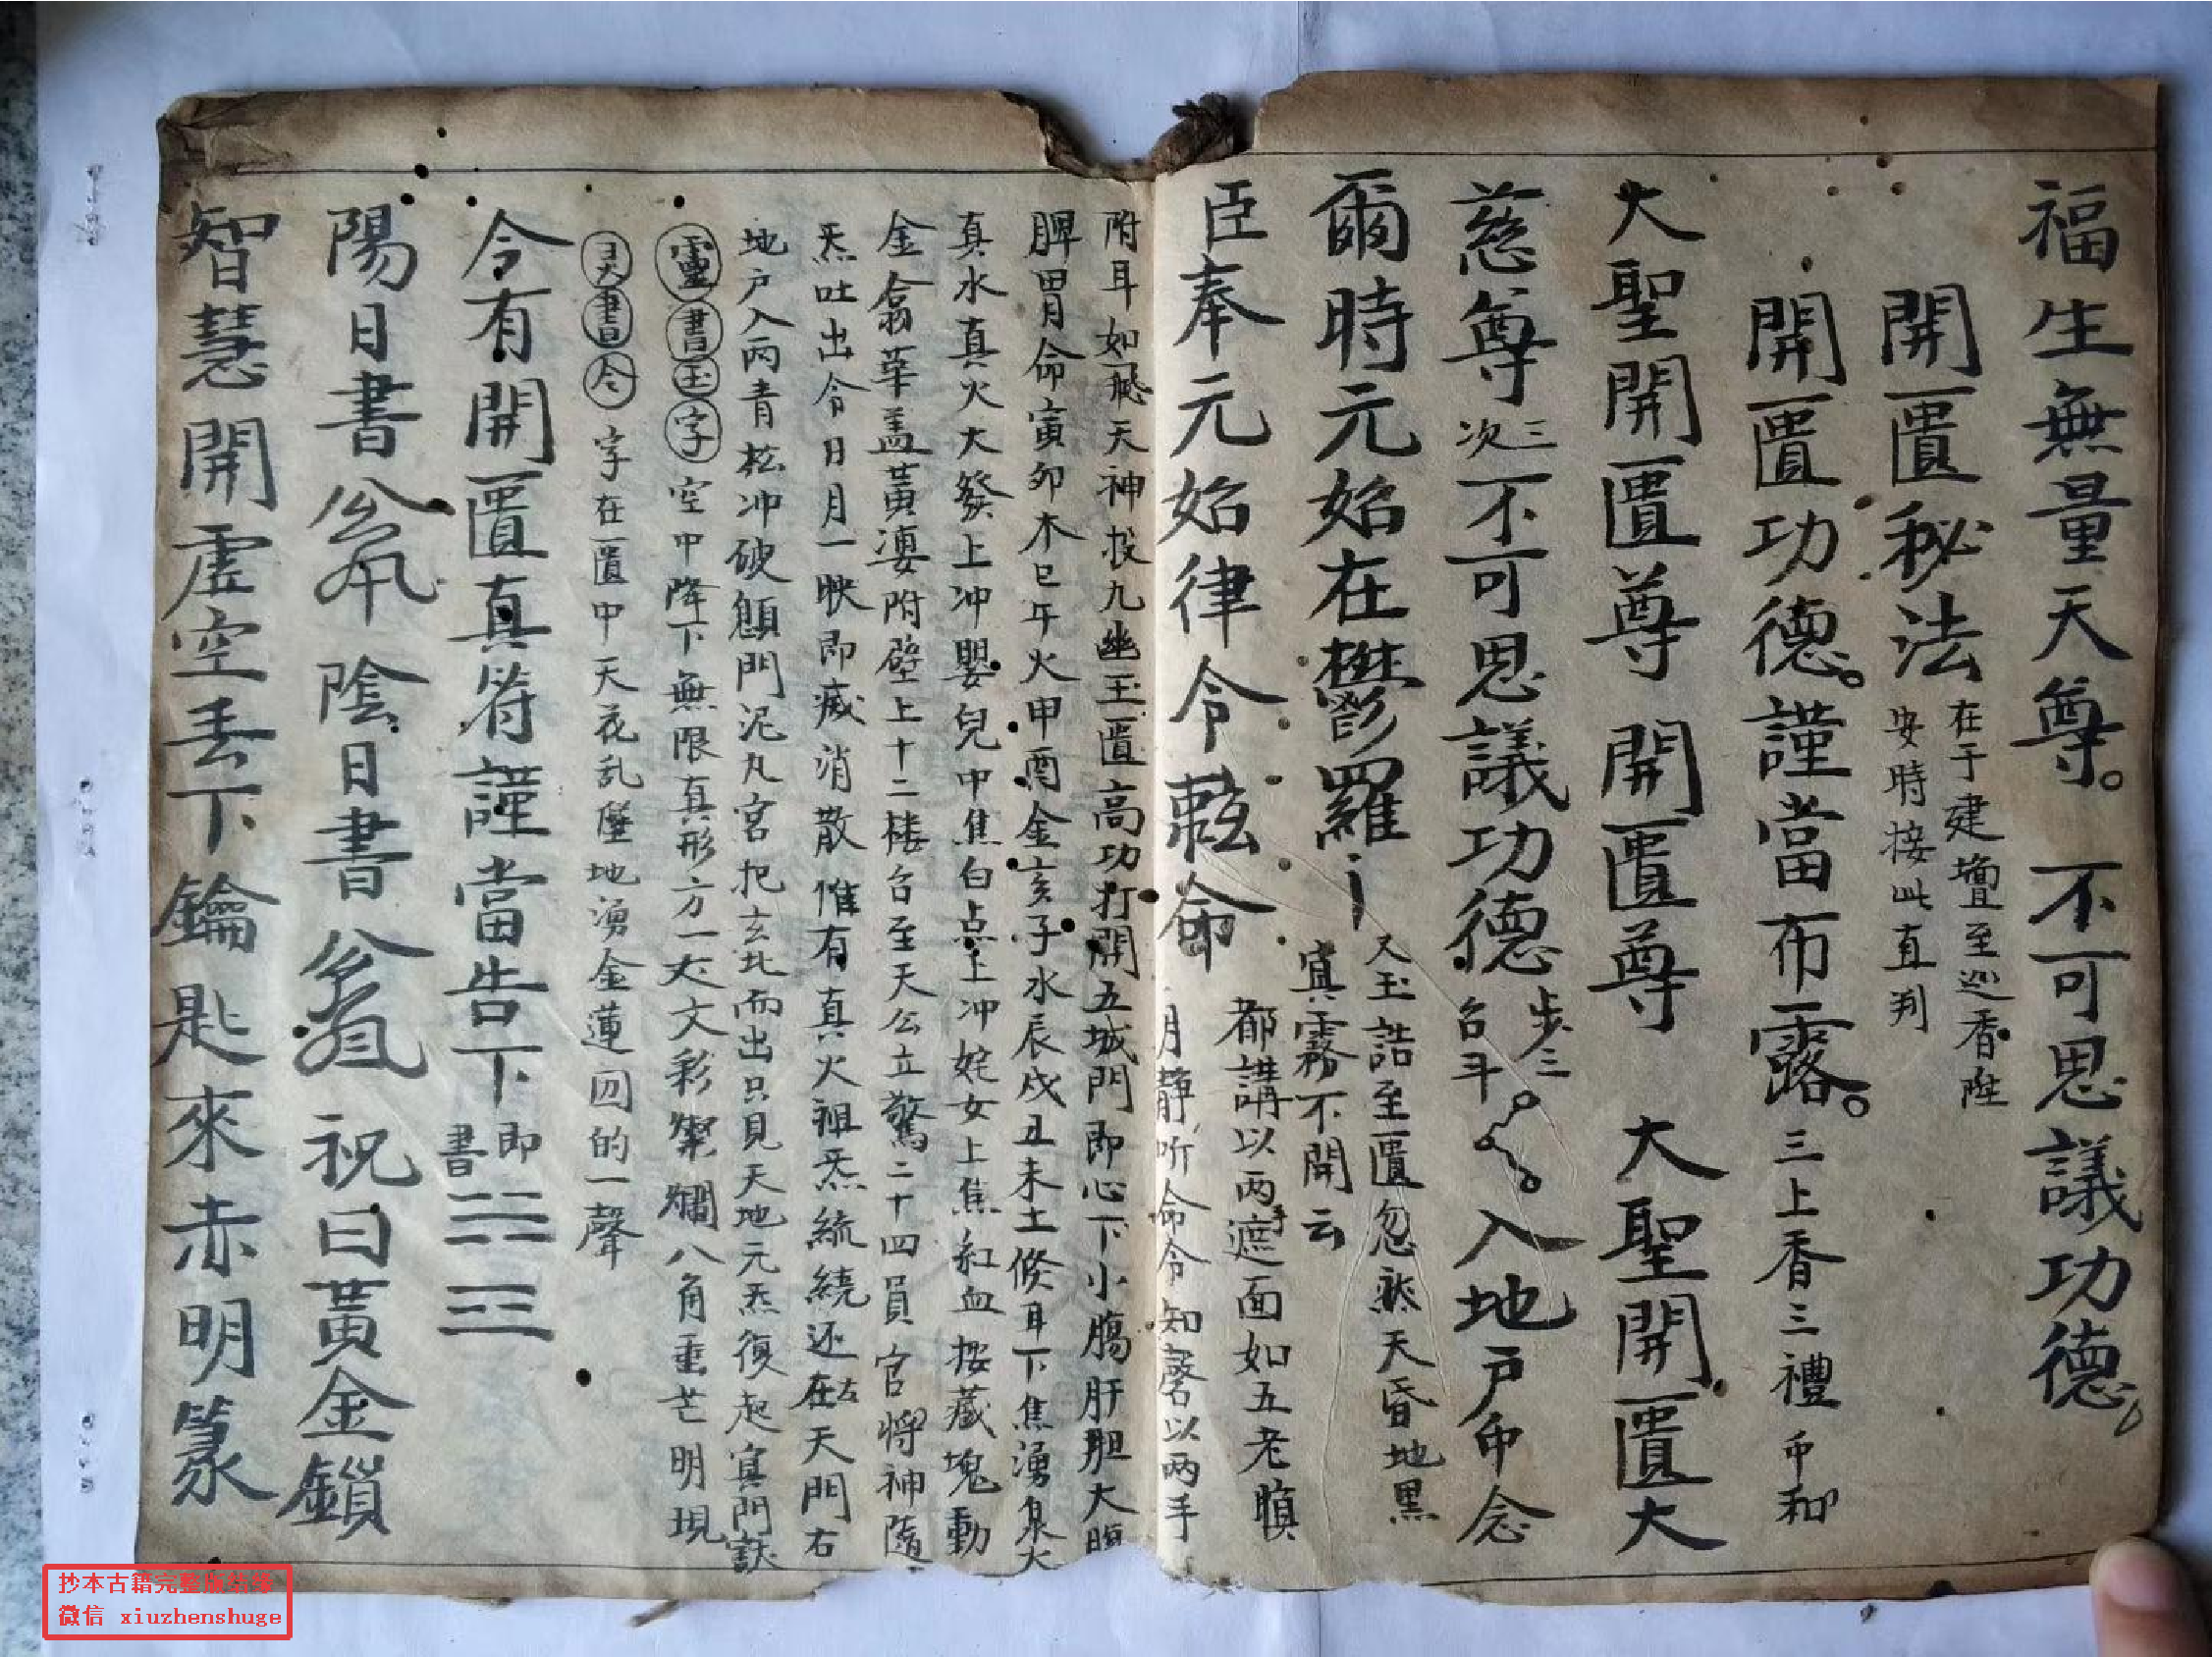 福生無量天尊。不可思議功德。
開匱秘法 在于建壇至巡香陞
安時接此直判
開匱功德。謹當布露。三上香三禮 和
大聖開匱尊 開匱尊 大聖開匱大
慈尊 三次 不可思議功德 步三台斗 入地户 念
爾時元始在鬱羅 又玉誥至匱忽然天昏地黑
寘霧不開云
臣奉元始律令 命 都講以兩手遮面如五老
月静听命令知磬以兩手
附耳如 天神投九幽玉匱高功打開五城門即心下小腸肝胆大腸
脾胃命寅卯木巳午火甲酉金亥子水辰戌丑未土候耳下焦湧泉大
真水真火大發上冲嬰兒中焦白点上冲姹女上焦紅血按藏塊動
金翕華盖黄 附壁上十二楼台至天公立驚二十四員官將神隨
炁吐出令日月一映即滅消散惟有真火祖炁統繞还在左天門右
地户入兩青松冲破顖門泥丸宮把玄北而出只見天地元炁復起寘門訣
靈書玉字空中降下無限真形方一丈文彩燦爛八角垂芒明現
書令字在匱中天花乱墜地湧金蓮 的一聲
今有開匱真符謹當告下 即書
陽日書 陰日書 祝曰黃金鎖
智慧開虛空丢下鑰匙來赤明篆
抄本古籍完整版结缘
微信 xiuzhenshuge